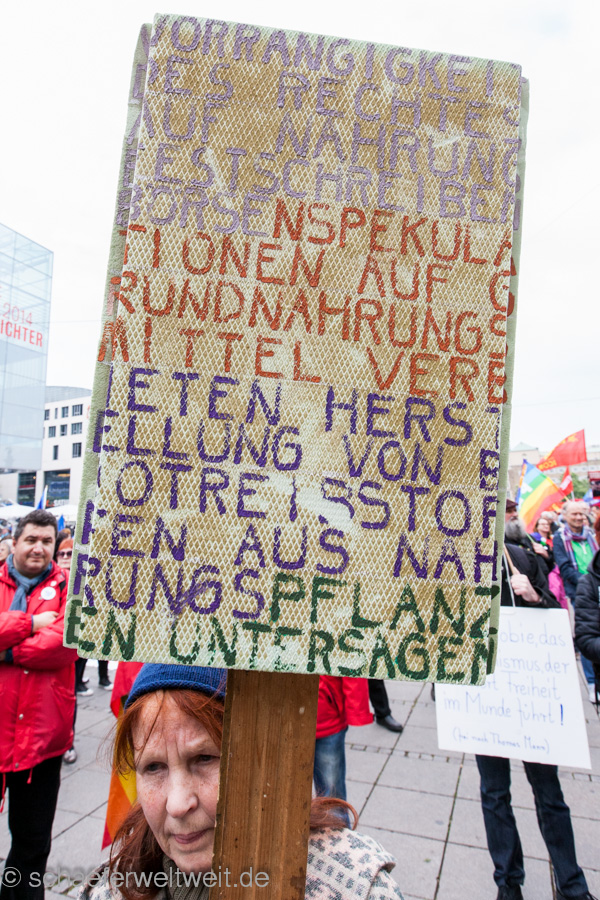 VORRANGIGKEIT
DES RECHTES
AUF NAHRUNG
FESTSCHREIBEN
BÖRSENSPEKULA
TIONEN AUF G
RUNDNAHRUNGS
MITTEL VERB
IETEN HERST
ELLUNG VON B
IOTREIBSTOF
FEN AUS NAH
RUNGSPFLANZ
EN UNTERSAGEN
2014
RICHTER
obie, das
ismus, der
Freiheit
im Munde führt!
(frei nach Thomas Mann)
© www.schaeferweltweit.de